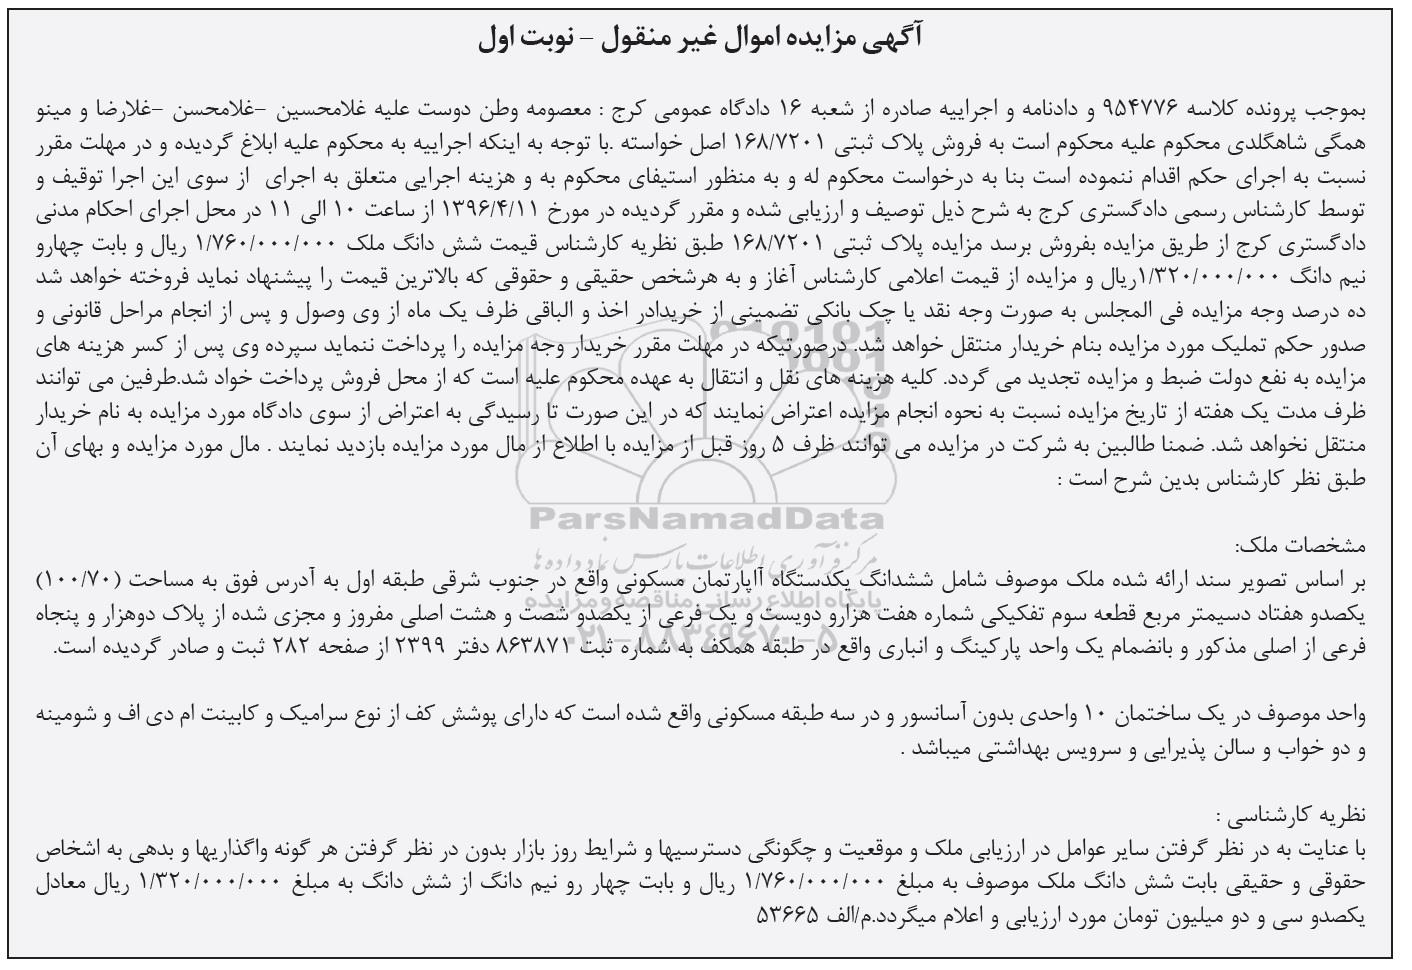 آگهی مزایده اموال غیر منقول – نوبت اول
بموجب پرونده کلاسه ۹۵۴۷۷۶ و دادنامه و اجراییه صادره از شعبه ۱۶ دادگاه عمومی کرج : معصومه وطن دوست علیه غلامحسین –غلامحسن –غلارضا و مینو
همگی شاهگلدی محکوم علیه محکوم است به فروش پلاک ثبتی ۱۶۸/۷۲۰۱ اصل خواسته .با توجه به اینکه اجراییه به محکوم علیه ابلاغ گردیده و در مهلت مقرر
نسبت به اجرای حکم اقدام ننموده است بنا به درخواست محکوم له و به منظور استیفای محکوم به و هزینه اجرایی متعلق به اجرای از سوی این اجرا توقیف و
توسط کارشناس رسمی دادگستری کرج به شرح ذیل توصیف و ارزیابی شده و مقرر گردیده در مورخ ۱۳۹۶/۴/۱۱ از ساعت ۱۰ الی ۱۱ در محل اجرای احکام مدنی
دادگستری کرج از طریق مزایده بفروش برسد مزایده پلاک ثبتی ۱۶۸/۷۲۰۱ طبق نظریه کارشناس قیمت شش دانگ ملک ۱/۷۶۰/۰۰۰/۰۰۰ ریال و بابت چهارو
نیم دانگ ۱/۳۲۰/۰۰۰/۰۰۰ریال و مزایده از قیمت اعلامی کارشناس آغاز و به هرشخص حقیقی و حقوقی که بالاترین قیمت را پیشنهاد نماید فروخته خواهد شد
ده درصد وجه مزایده فی المجلس به صورت وجه نقد یا چک بانکی تضمینی از خریدادر اخذ و الباقی ظرف یک ماه از وی وصول و پس از انجام مراحل قانونی و
صدور حکم تملیک مورد مزایده بنام خریدار منتقل خواهد شد. درصورتیکه در مهلت مقرر خریدار وجه مزایده را پرداخت ننماید سپرده وی پس از کسر هزینه های
مزایده به نفع دولت ضبط و مزایده تجدید می گردد. کلیه هزینه های نقل و انتقال به عهده محکوم علیه است که از محل فروش پرداخت خواد شد.طرفین می توانند
ظرف مدت یک هفته از تاریخ مزایده نسبت به نحوه انجام مزایده اعتراض نمایند که در این صورت تا رسیدگی به اعتراض از سوی دادگاه مورد مزایده به نام خریدار
منتقل نخواهد شد. ضمنا طالبین به شرکت در مزایده می توانند ظرف ۵ روز قبل از مزایده با اطلاع از مال مورد مزایده بازدید نمایند . مال مورد مزایده و بهای آن
طبق نظر کارشناس بدین شرح است :
ParsNamadData
مشخصات ملک:
مرکز فرآوری اطلاعات پارس نماد داده ها
بر اساس تصویر سند ارائه شده ملک موصوف شامل ششدانگ یکدستگاه آاپارتمان مسکونی واقع در جنوب شرقی طبقه اول به آدرس فوق به مساحت (۱۰۰/۷۰)
پایگاه اطلاع رسانی مناقصه و مزایده
یکصدو هفتاد دسیمتر مربع قطعه سوم تفکیکی شماره هفت هزارو دویست و یک فرعی از یکصدو شصت و هشت اصلی مفروز و مجزی شده از پلاک دوهزار و پنجاه
۰۲۱–۸۸۳۴۹۶۷۰–۵
فرعی از اصلی مذکور و بانضمام یک واحد پارکینگ و انباری واقع در طبقه همکف به شماره ثبت ۸۶۳۸۷۱ دفتر ۲۳۹۹ از صفحه ۲۸۲ ثبت و صادر گردیده است.
واحد موصوف در یک ساختمان ۱۰ واحدی بدون آسانسور و در سه طبقه مسکونی واقع شده است که دارای پوشش کف از نوع سرامیک و کابینت ام دی اف و شومینه
و دو خواب و سالن پذیرایی و سرویس بهداشتی میباشد .
نظریه کارشناسی :
با عنایت به در نظر گرفتن سایر عوامل در ارزیابی ملک و موقعیت و چگونگی دسترسیها و شرایط روز بازار بدون در نظر گرفتن هر گونه واگذاریها و بدهی به اشخاص
حقوقی و حقیقی بابت شش دانگ ملک موصوف به مبلغ ۱/۷۶۰/۰۰۰/۰۰۰ ریال و بابت چهار رو نیم دانگ از شش دانگ به مبلغ ۱/۳۲۰/۰۰۰/۰۰۰ ریال معادل
یکصدو سی و دو میلیون تومان مورد ارزیابی و اعلام میگردد.م/الف ۵۳۶۶۵